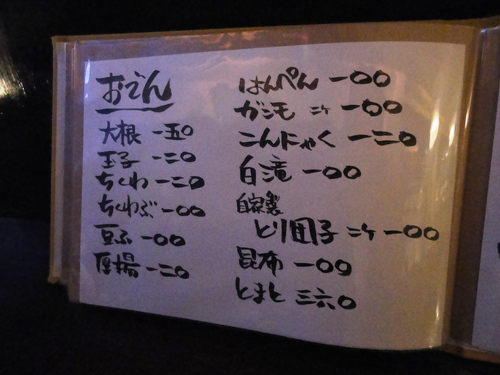 おでん
大根 一五〇
玉子 一二〇
ちくわ 一二〇
ちくわぶ 一〇〇
豆ふ 一〇〇
厚揚 一二〇
はんぺん 一〇〇
ガンモ 二ケ 一〇〇
こんにゃく 一二〇
白滝 一〇〇
自家製
とり団子 二ケ 一〇〇
昆布 一〇〇
とまと 三六〇